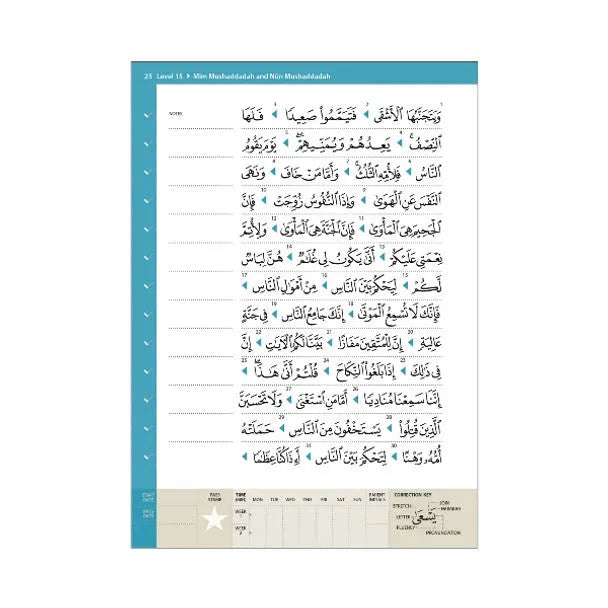 25 Level 15 ▸ Mīm Mushaddadah and Nūn Mushaddadah
NOTES
وَيَتَجَنَّبُهَا ٱلْأَشْقَى فَتَيَمَّمُوا۟ صَعِيدًا فَلَهَا
ٱلنِّصْفُ يَعِدُهُمْ وَيُمَنِّيهِمْ يَوْمَ يَقُومُ
ٱلنَّاسُ فَلِأُمِّهِ ٱلثُّلُثُ وَأَمَّا مَنْ خَافَ وَنَهَى
ٱلنَّفْسَ عَنِ ٱلْهَوَىٰ وَإِذَا ٱلنُّفُوسُ زُوِّجَتْ فَإِنَّ
ٱلْجَحِيمَ هِىَ ٱلْمَأْوَىٰ فَإِنَّ ٱلْجَنَّةَ هِىَ ٱلْمَأْوَىٰ وَلِأُتِمَّ
نِعْمَتِى عَلَيْكُمْ أَنَّىٰ يَكُونُ لِى غُلَٰمٌ هُنَّ لِبَاسٌ
لَّكُمْ لِيَحْكُمَ بَيْنَ ٱلنَّاسِ مِنْ أَمْوَٰلِ ٱلنَّاسِ
فَإِنَّكَ لَا تُسْمِعُ ٱلْمَوْتَىٰ إِنَّكَ جَامِعُ ٱلنَّاسِ فِى جَنَّةٍ
عَالِيَةٍ إِنَّ لِلْمُتَّقِينَ مَفَازًا بَيَّنَّا لَكُمُ ٱلْءَايَٰتِ إِنَّ
فِى ذَٰلِكَ إِذَا بَلَغُوا۟ ٱلنِّكَاحَ قُلْتُمْ أَنَّىٰ هَٰذَا
إِنَّنَا سَمِعْنَا مُنَادِيًا أَمَّا مَنِ ٱسْتَغْنَىٰ وَلَا تَحْسَبَنَّ
ٱلَّذِينَ قُتِلُوا۟ يَسْتَخْفُونَ مِنَ ٱلنَّاسِ حَمَلَتْهُ
أُمُّهُۥ وَهْنًا لِتَحْكُمَ بَيْنَ ٱلنَّاسِ أَءِذَا كُنَّا عِظَٰمًا
START DATE
PASS STAMP
TIME (MIN) MON TUE WED THU FRI SAT SUN PARENT INITIALS
WEEK 1
WEEK 2
CORRECTION KEY
STRETCH
JOIN/ HARAKAH
LETTER
يَسْعَىٰ
FLUENCY
PRONUNCIATION